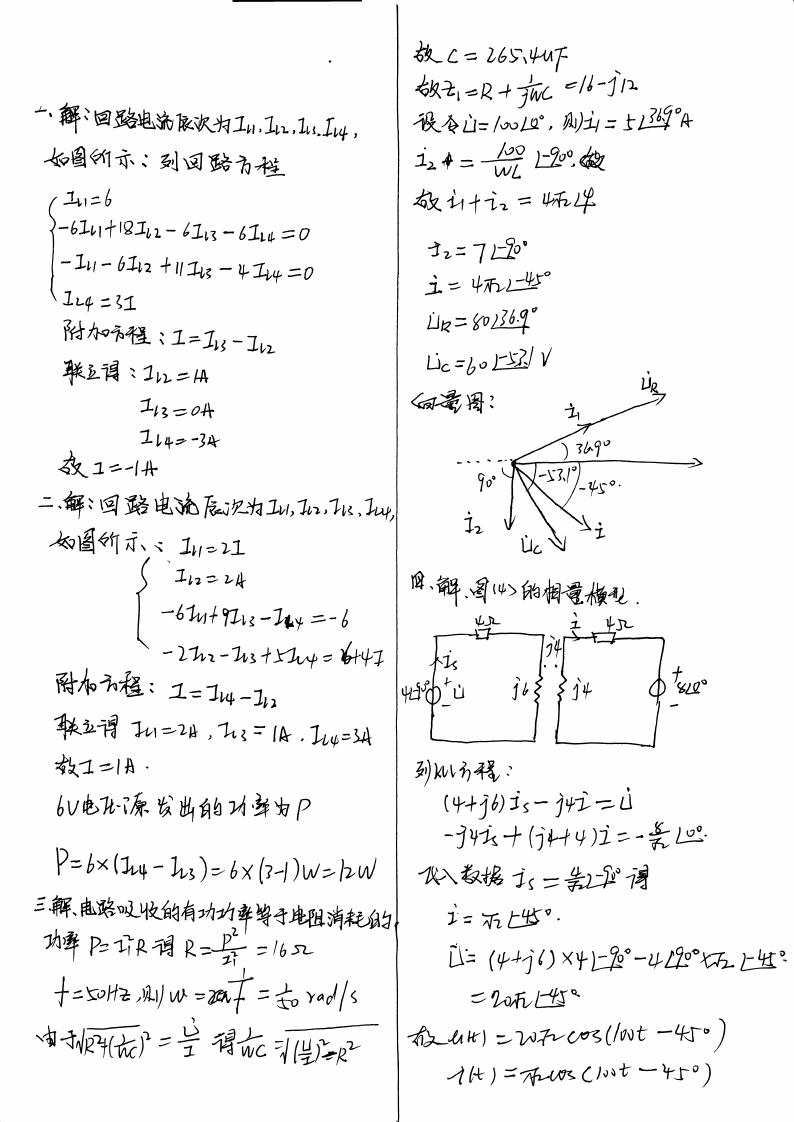 一、解：回路电流层次为IL1,IL2,IL3,IL4,
如图所示：列回路方程
IL1=6
-6IL1+18IL2-6IL3-6IL4=0
-IL1-6IL2+11IL3-4IL4=0
IL4=3I
附加方程：I=IL3-IL2
联立得：IL2=1A
IL3=0A
IL4=-3A
故I=-1A
二、解：回路电流层次为IL1,IL2,IL3,IL4,
如图所示：IL1=2I
IL2=2A
-6IL1+9IL3-IL4=-6
-2IL2-IL3+5IL4=6+4I
附加方程：I=IL4-IL2
联立得 IL1=2A,IL3=1A,IL4=3A
故I=1A.
6V电压源发出的功率为P
P=6×(IL4-IL3)=6×(3-1)W=12W
三、解、电路吸收的有功功率等于电阻消耗的
功率 P=I₁²R 得 R=P²/I₁²=16Ω
f=50Hz,则W=2π/f=1/50 rad/s
由于√(R²+(1/WC)²)=U̇/I 得1/WC=√((U/I)²-R²)
故C=265.4uF
故Z1=R+1/jWC=16-j12
设令U̇=100∠0°,则İ1=5∠36.9°A
İ2=100/WL ∠-90°,
故İ1+İ2=4√2∠
İ2=7∠-90°
İ=4√2∠-45°
U̇R=80∠36.9°
U̇C=60∠-53.1 V
向量图：
U̇R
İ1
36.9°
90°
-53.1°
-45°.
İ2
U̇C
İ
四、解、图(4)的相量模型.
4Ω
j4
İ
4Ω
İs
4∠90°
+
U̇
-
j6
j4
+
8∠0°
-
列KVL方程：
(4+j6)İs-j4İ=U̇
-j4İs+(j4+4)İ=-8/√2∠0°.
代入数据 İs=4/√2∠-90°得
İ=√2∠45°.
U̇=(4+j6)×4∠-90°-4∠90°×√2∠-45°
=20√2∠-45°
故u(t)=20√2cos(100t-45°)
i(t)=√2cos(100t-45°)